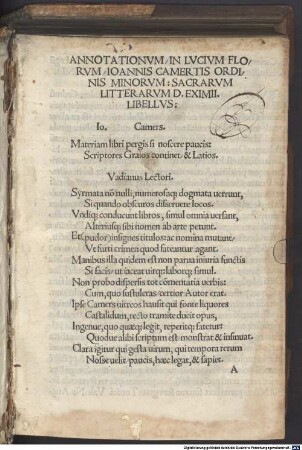 ANNOTATIONVM/IN LVCIVM FLO/
RVM/IOANNIS CAMERTIS ORDI/
NIS MINORVM: SACRARVM
LITTERARVM D. EXIMII.
LIBELLVS:
Io. Camers.
Materiam libri pergis si noscere paucis:
Scriptores Graios continet & Latios.
Vadianus Lectori.
Syrmata nõ nulli, numerosaq; dogmata uerrunt,
Si quando obscuros disseruere locos.
Vndiq; conducunt libros, simul omnia uersant,
Alteriusq; sibi nomen ab arte petunt.
Et (pudor) insignes titulos ac nomina mutant
Ve furti crimen quod fateantur agant.
Manibus illa quidem est non parua iniuria functis
Si facis ut iaceat uirq; laborq; simul.
Non probo dispersis tot cõmentaria uerbis:
Cum, quo sustuleras, uertior Autor erat.
Ipse Camers uitreos hausit qui fonte liquores
Castalidum, recto tramite ducit opus,
Ingenue, quo quæq; legit, reperitq; fatetur
Quodue alibi scriptum est monstrat & insinuat.
Clara igitur qui gesta uirum, qui tempora rerum
Nosse uelit paucis, hæc legat, & sapiet.
A